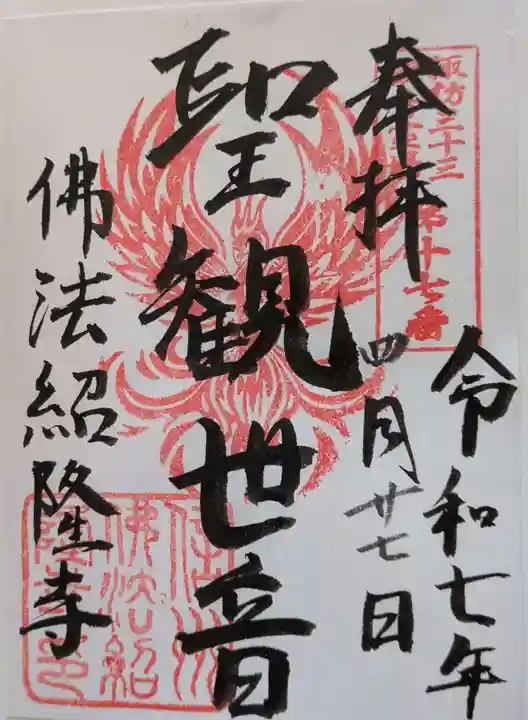 奉拝
令和七年
四月廿七日
聖観世音
佛法紹隆寺
諏訪三十三
第十七番
信州
佛法紹
隆寺印